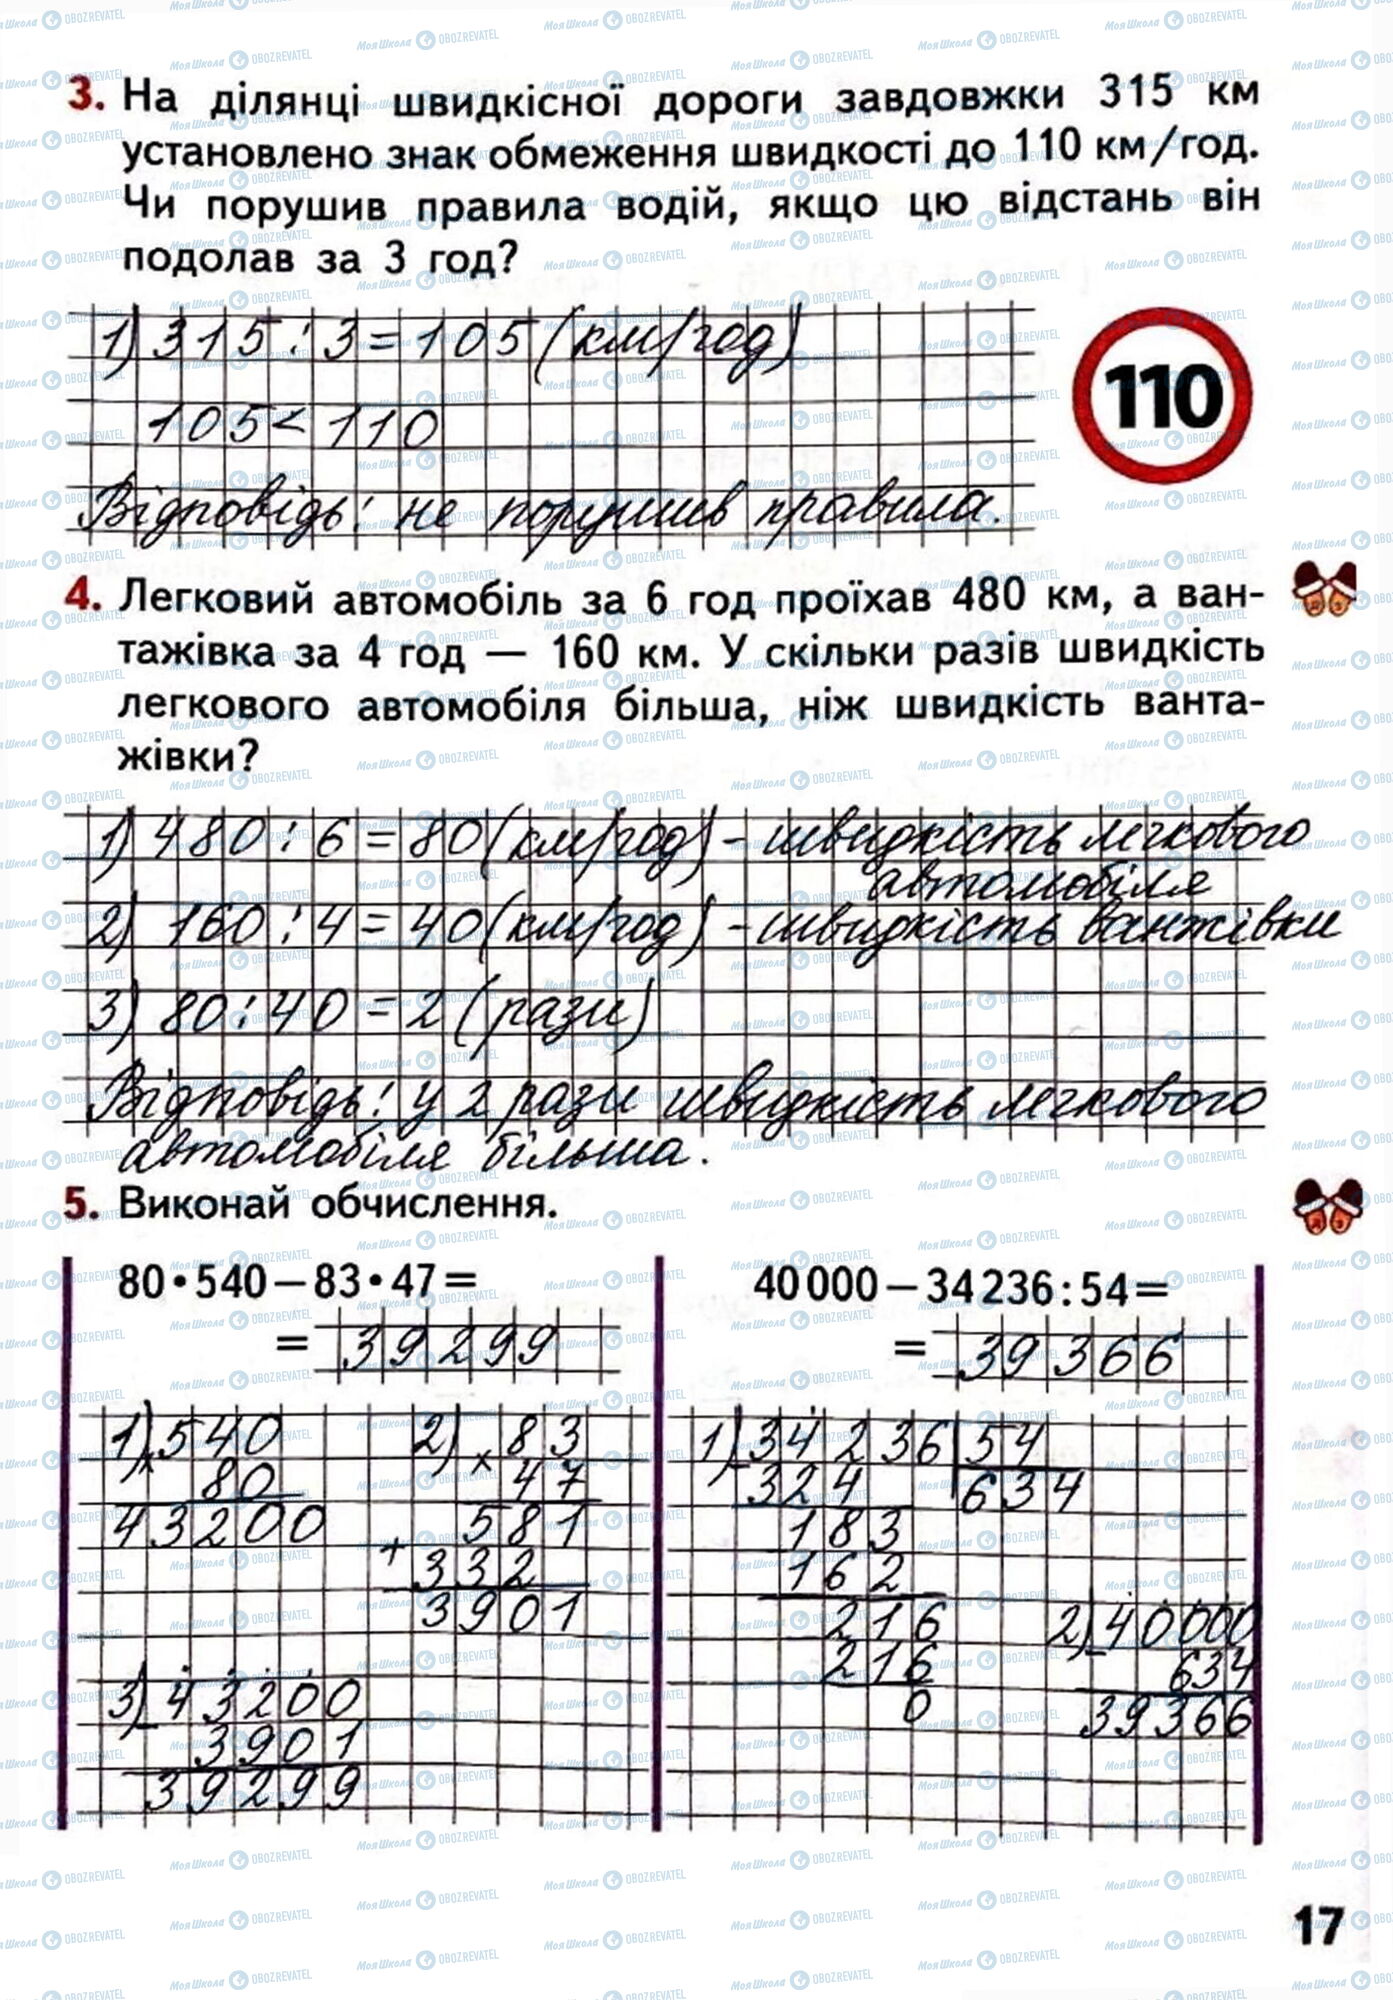 3. На ділянці швидкісної дороги завдовжки 315 км
установлено знак обмеження швидкості до 110 км/год.
Чи порушив правила водій, якщо цю відстань він
подолав за 3 год?
1) 315 : 3 = 105 (км/год)
105 < 110
110
Відповідь: не порушив правила.
4. Легковий автомобіль за 6 год проїхав 480 км, а ван-
тажівка за 4 год — 160 км. У скільки разів швидкість
легкового автомобіля більша, ніж швидкість ванта-
жівки?
1) 480 : 6 = 80 (км/год) - швидкість легкового
автомобіля
2) 160 : 4 = 40 (км/год) - швидкість вантжівки
3) 80 : 40 = 2 (рази)
Відповідь: у 2 рази швидкість легкового
автомобіля більша.
5. Виконай обчислення.
80 • 540 – 83 • 47 =
= 39299
1) × 540
80
43200
2) × 83
47
581
+ 332
3901
3) - 43200
3901
39299
40 000 – 34 236 : 54 =
= 39366
1) - 34236 | 54
324 634
183
162
216
216
0
2) - 40000
634
39366
17
МояШкола OBOZREVATEL